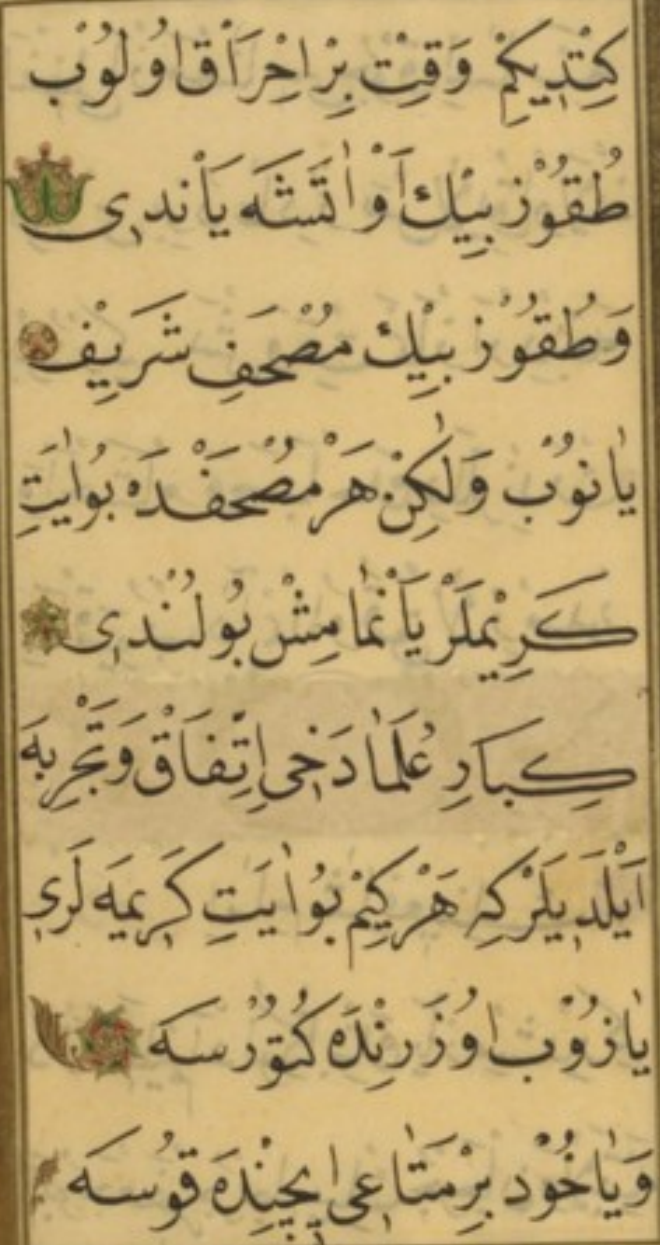 كِتْدِيكِمْ وَقِتْ بِرْ اِحْرَاْقْ اُولُوْبْ
طُقُوْزْ بِيْكْ اَوْ اٰتَشَهْ يَاْنْدِى
وَطُقُوْزْ بِيْكْ مُصْحَفِ شَرِيْفْ
يٰانُوْبْ وَلٰكِنْ هَرْ مُصْحَفْدَهْ بُوْ اٰيَتِ
كَرِيْمَلَرْ يَاْنْمٰامِشْ بُولُنْدِى
كِبَارِ عُلَمٰا دَخِى اِتِّفَاقْ وَتَجْرِبَهْ
اَيْلَدِيلَرْ كِهْ هَرْ كِيْمْ بُوْ اٰيَتِ كَرِيمَهْ لَرِى
يٰازُوْبْ اُوْزَرِنْدَهْ كُتُوْرْسَهْ
وَيٰاخُوْدْ بِرْ مَتٰاعِى اِيچِنْدَهْ قُوسَهْ